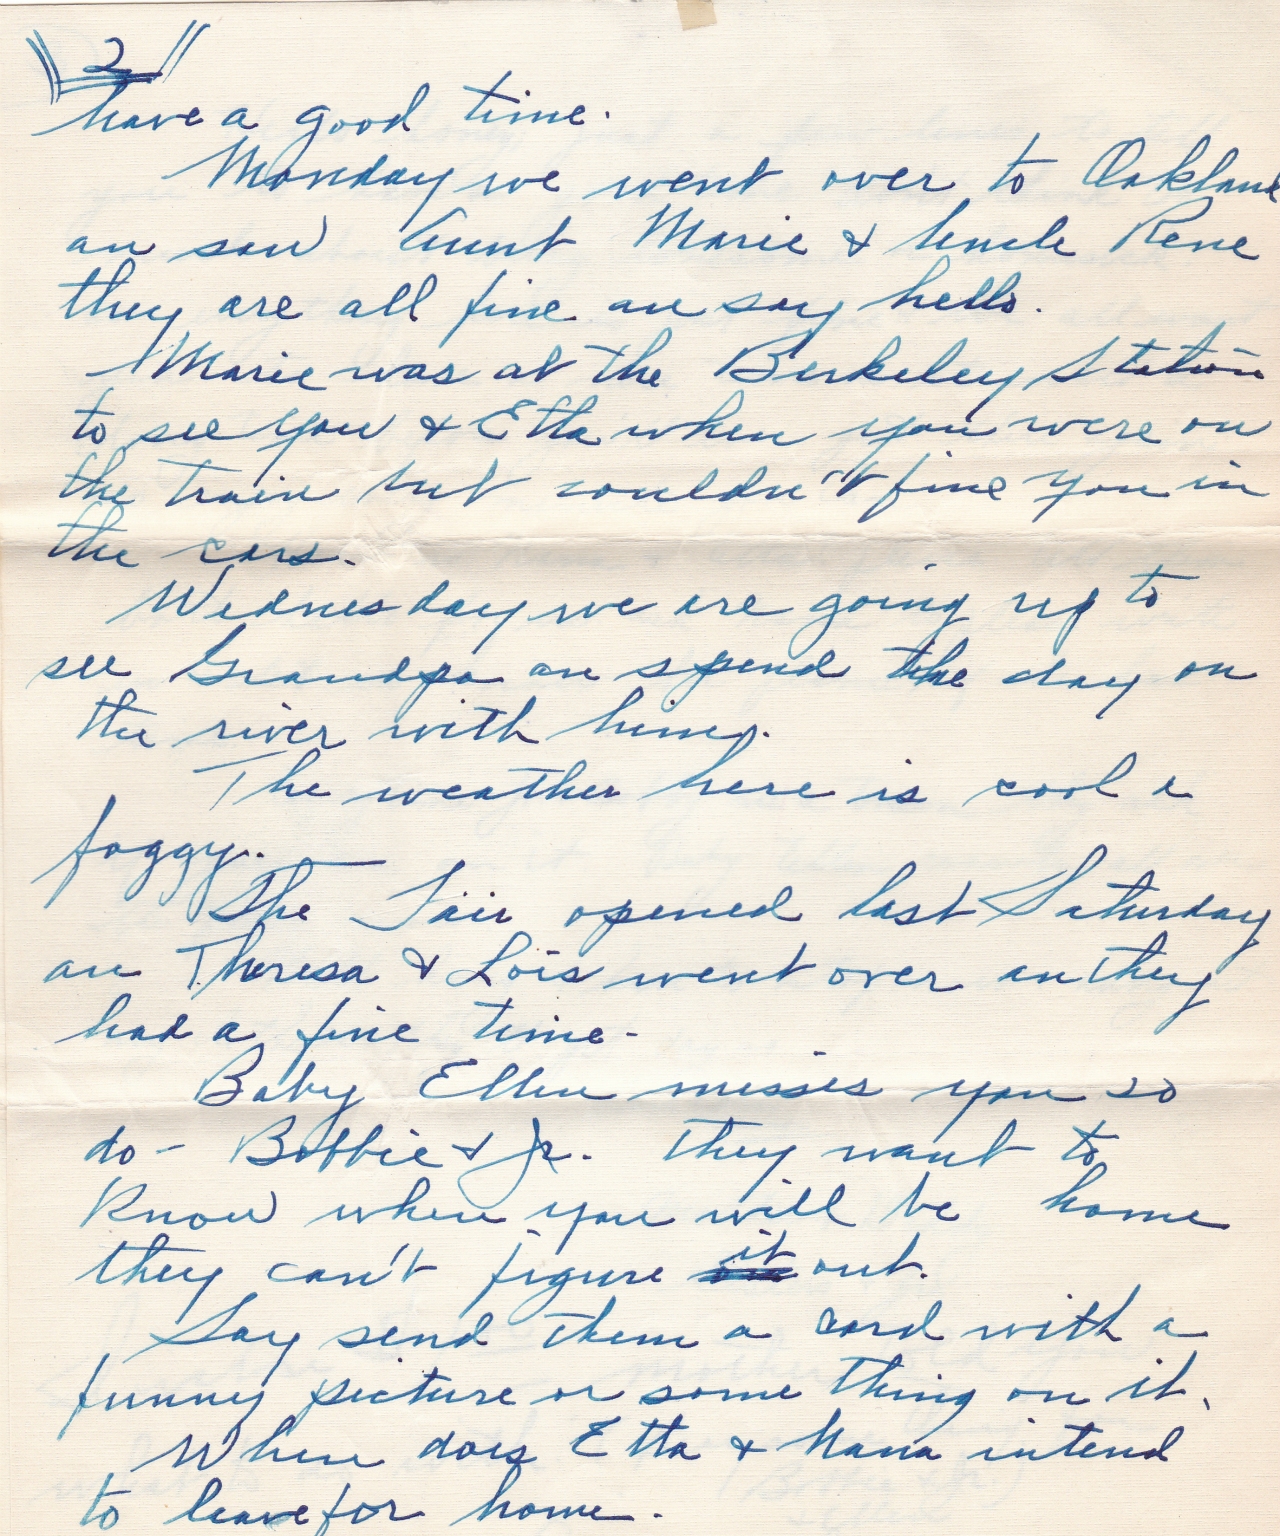 2
have a good time.
Monday we went over to Oakland
an saw Aunt Marie & Uncle Rene
they are all fine an say hello.
Marie was at the Berkeley Station
to see you & Etta when you were on
the train but couldn't fine you in
the cars.
Wednesday we are going up to
see Grandpa an spend the day on
the river with him.
The weather here is cool &
foggy.
The Fair opened last Saturday
an Theresa & Lois went over an they
had a fine time-
Baby Ellen misses you so
do- Bobbie & Jr. They want to
know when you will be home
they can't figure it out.
Say send them a card with a
funny picture or some thing on it.
When does Etta & Nana intend
to leave for home.